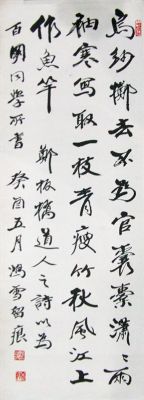 烏紗擲去不為官囊橐瀟々兩
袖寒寫取一枝青瘦竹秋風江上
作魚竿 鄭板橋道人之詩以為
百園同學所書 癸酉五月 鴻雪留痕